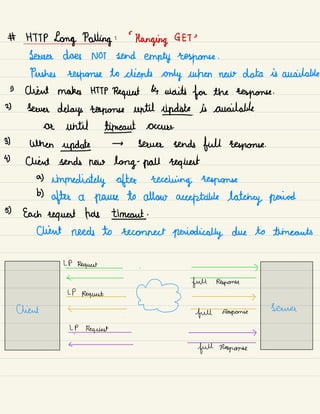 # HTTP Long Polling: "Hanging GET"
Server does NOT send empty response.
Pushes response to clients only when new data is available
1) Client makes HTTP Request & waits for the response.
2) Server delays response until update is available
or until timeout occurs
3) When update → Server sends full response.
4) Client sends new long-poll request
a) immediately after receiving response
b) after a pause to allow acceptable latency period
5) Each request has timeout.
Client needs to reconnect periodically due to timeouts
LP Request
full Response
LP Request
Client
full Response
Server
LP Request
full Response